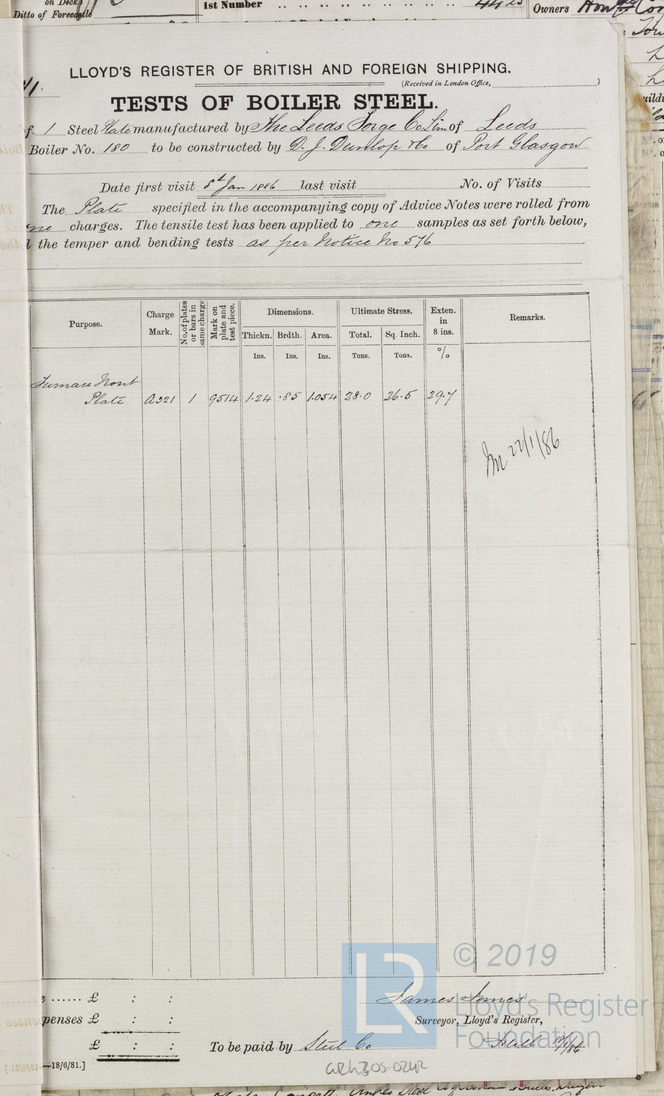 on Deck
Ditto of Forecastle
1st Number
Owners
LLOYD'S REGISTER OF BRITISH AND FOREIGN SHIPPING.
(Received in London Office, )
TESTS OF BOILER STEEL.
of 1 Steel Plate manufactured by The Leeds Forge Co Lim of Leeds
Boiler No. 180 to be constructed by D. J. Dunlop & Co of Port Glasgow
Date first visit 8th Jan 1886 last visit No. of Visits
The Plate specified in the accompanying copy of Advice Notes were rolled from
one charges. The tensile test has been applied to one samples as set forth below,
the temper and bending tests as per Notice No 576
Purpose. Charge Mark. No. of plates or bars in same charge Mark on plate and test piece. Dimensions. Ultimate Stress. Exten. in 8 ins. Remarks.
Thickn. Brdth. Area. Total. Sq. Inch.
Ins. Ins. Ins. Tons. Tons. %
Furnace Front
Plate A321 1 9514 1.24 .85 1.054 28.0 26.5 29.7
22/1/86
£ : :
penses £ : :
£ : : To be paid by Steel Co
James Jones
Surveyor, Lloyd's Register,
—18/6/81.]
© 2019
LR
Lloyd's Register
Foundation